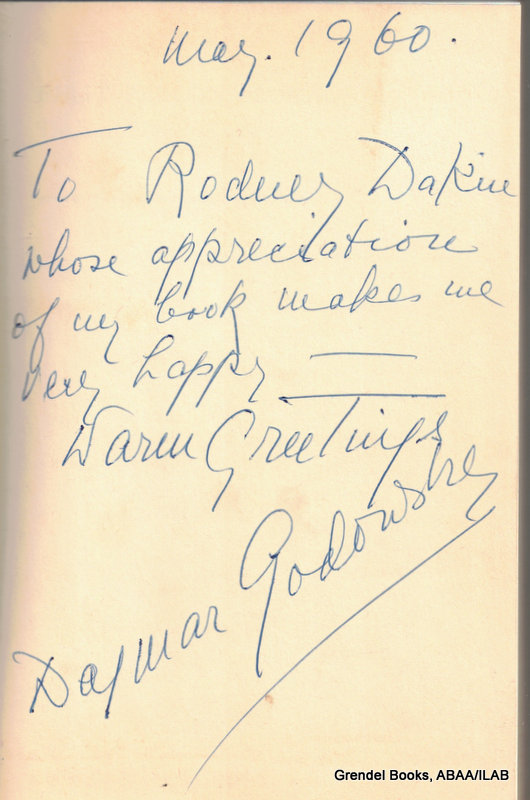 May. 1960.
To Rodney Dakin
whose appreciation
of my book makes me
very happy —
Warm Greetings
Dagmar Godowsky
Grendel Books, ABAA/ILAB